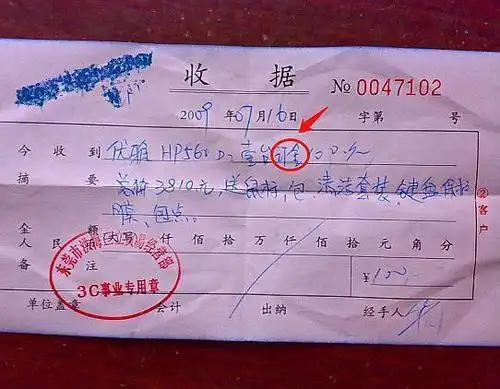 收 据
№ 0047102
2009 年 07 月 16 日 字第 号
今 收 到 优雅 HP560 D2 壹台 订金 100元
摘 要 总价 3810元,送鼠标,包,清洁套装,键盘保护
膜,包点。
金 额 人民币 (大写) 仟 佰 拾 万 仟 佰 拾 元 角 分
备 注 ¥100.-
东莞市 经营部
3C事业专用章
单位盖章 会计 出纳 经手人
②客户